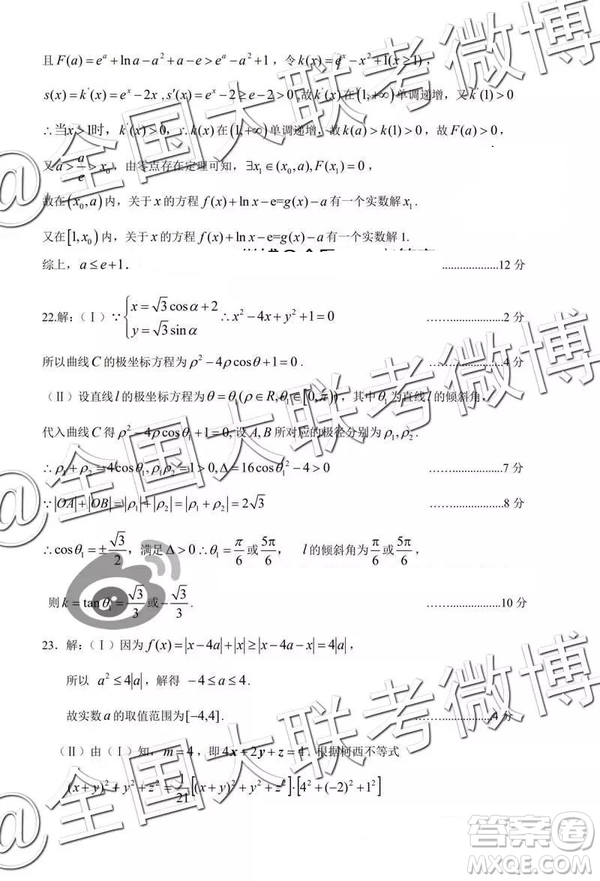 且 F(a)=e^a+ln a-a^2+a-e>e^a-a^2+1，令 k(x)=e^x-x^2+1(x≥1)，
s(x)=k'(x)=e^x-2x, s'(x)=e^x-2≥e-2>0,故 k'(x) 在(1,+∞)单调递增，又 k'(1)>0
∴当x>1时, k'(x)>0, ∴k(x)在(1,+∞)单调递增. 故 k(a)>k(1)>0，故 F(a)>0，
又 a>a/e>x_0，由零点存在定理可知，∃x_1∈(x_0,a),F(x_1)=0，
故在(x_0,a)内，关于 x 的方程 f(x)+ln x-e=g(x)-a 有一个实数解 x_1.
又在[1,x_0)内，关于 x 的方程 f(x)+ln x-e=g(x)-a 有一个实数解 1.
综上，a≤e+1. ....................12 分
22.解:（Ⅰ）∵{x=√3cosα+2 y=√3sinα ∴x^2-4x+y^2+1=0 ....................2 分
所以曲线 C 的极坐标方程为 ρ^2-4ρcosθ+1=0. ....................4 分
（Ⅱ）设直线 l 的极坐标方程为 θ=θ_1(ρ∈R,θ_1∈[0,π))，其中 θ_1 为直线 l 的倾斜角，
代入曲线 C 得 ρ^2-4ρcosθ_1+1=0,设 A,B 所对应的极径分别为 ρ_1,ρ_2.
∴ρ_1+ρ_2=4cosθ_1,ρ_1ρ_2=1>0,Δ=16cosθ_1^2-4>0 ....................7 分
∵|OA|+|OB|=|ρ_1|+|ρ_2|=|ρ_1+ρ_2|=2√3 ....................8 分
∴cosθ_1=±√3/2，满足Δ>0∴θ_1=π/6或5π/6，l 的倾斜角为π/6或5π/6，
则 k=tanθ_1=√3/3或-√3/3. ....................10 分
23. 解:（Ⅰ）因为 f(x)=|x-4a|+|x|≥|x-4a-x|=4|a|，
所以 a^2≤4|a|，解得 -4≤a≤4.
故实数 a 的取值范围为[-4,4]. ....................4 分
（Ⅱ）由（Ⅰ）知，m=4，即 4x+2y+z=4. 根据柯西不等式
(x+y)^2+y^2+z^2=1/21[(x+y)^2+y^2+z^2]·[4^2+(-2)^2+1^2]
@全国大联考微博
@全国大联考微博
@全国大联考微博
答案卷
MXQE.COM